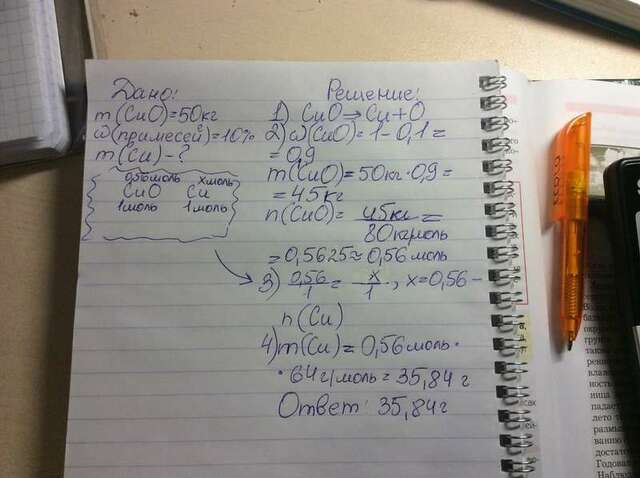 Дано:
m(CuO)=50кг
ω(примесей)=10%
m(Cu)-?
0,56моль хмоль
CuO Cu
1моль 1моль
Решение:
1) CuO→Cu+O
2) ω(CuO)=1-0,1=
=0,9
m(CuO)=50кг·0,9=
=45кг
n(CuO)= 45кг/80кгмоль =
=0,5625≈0,56 моль
3) 0,56/1 = x/1, x=0,56 -
n(Cu)
4) m(Cu)=0,56моль·
·64г/моль=35,84 г
Ответ: 35,84г